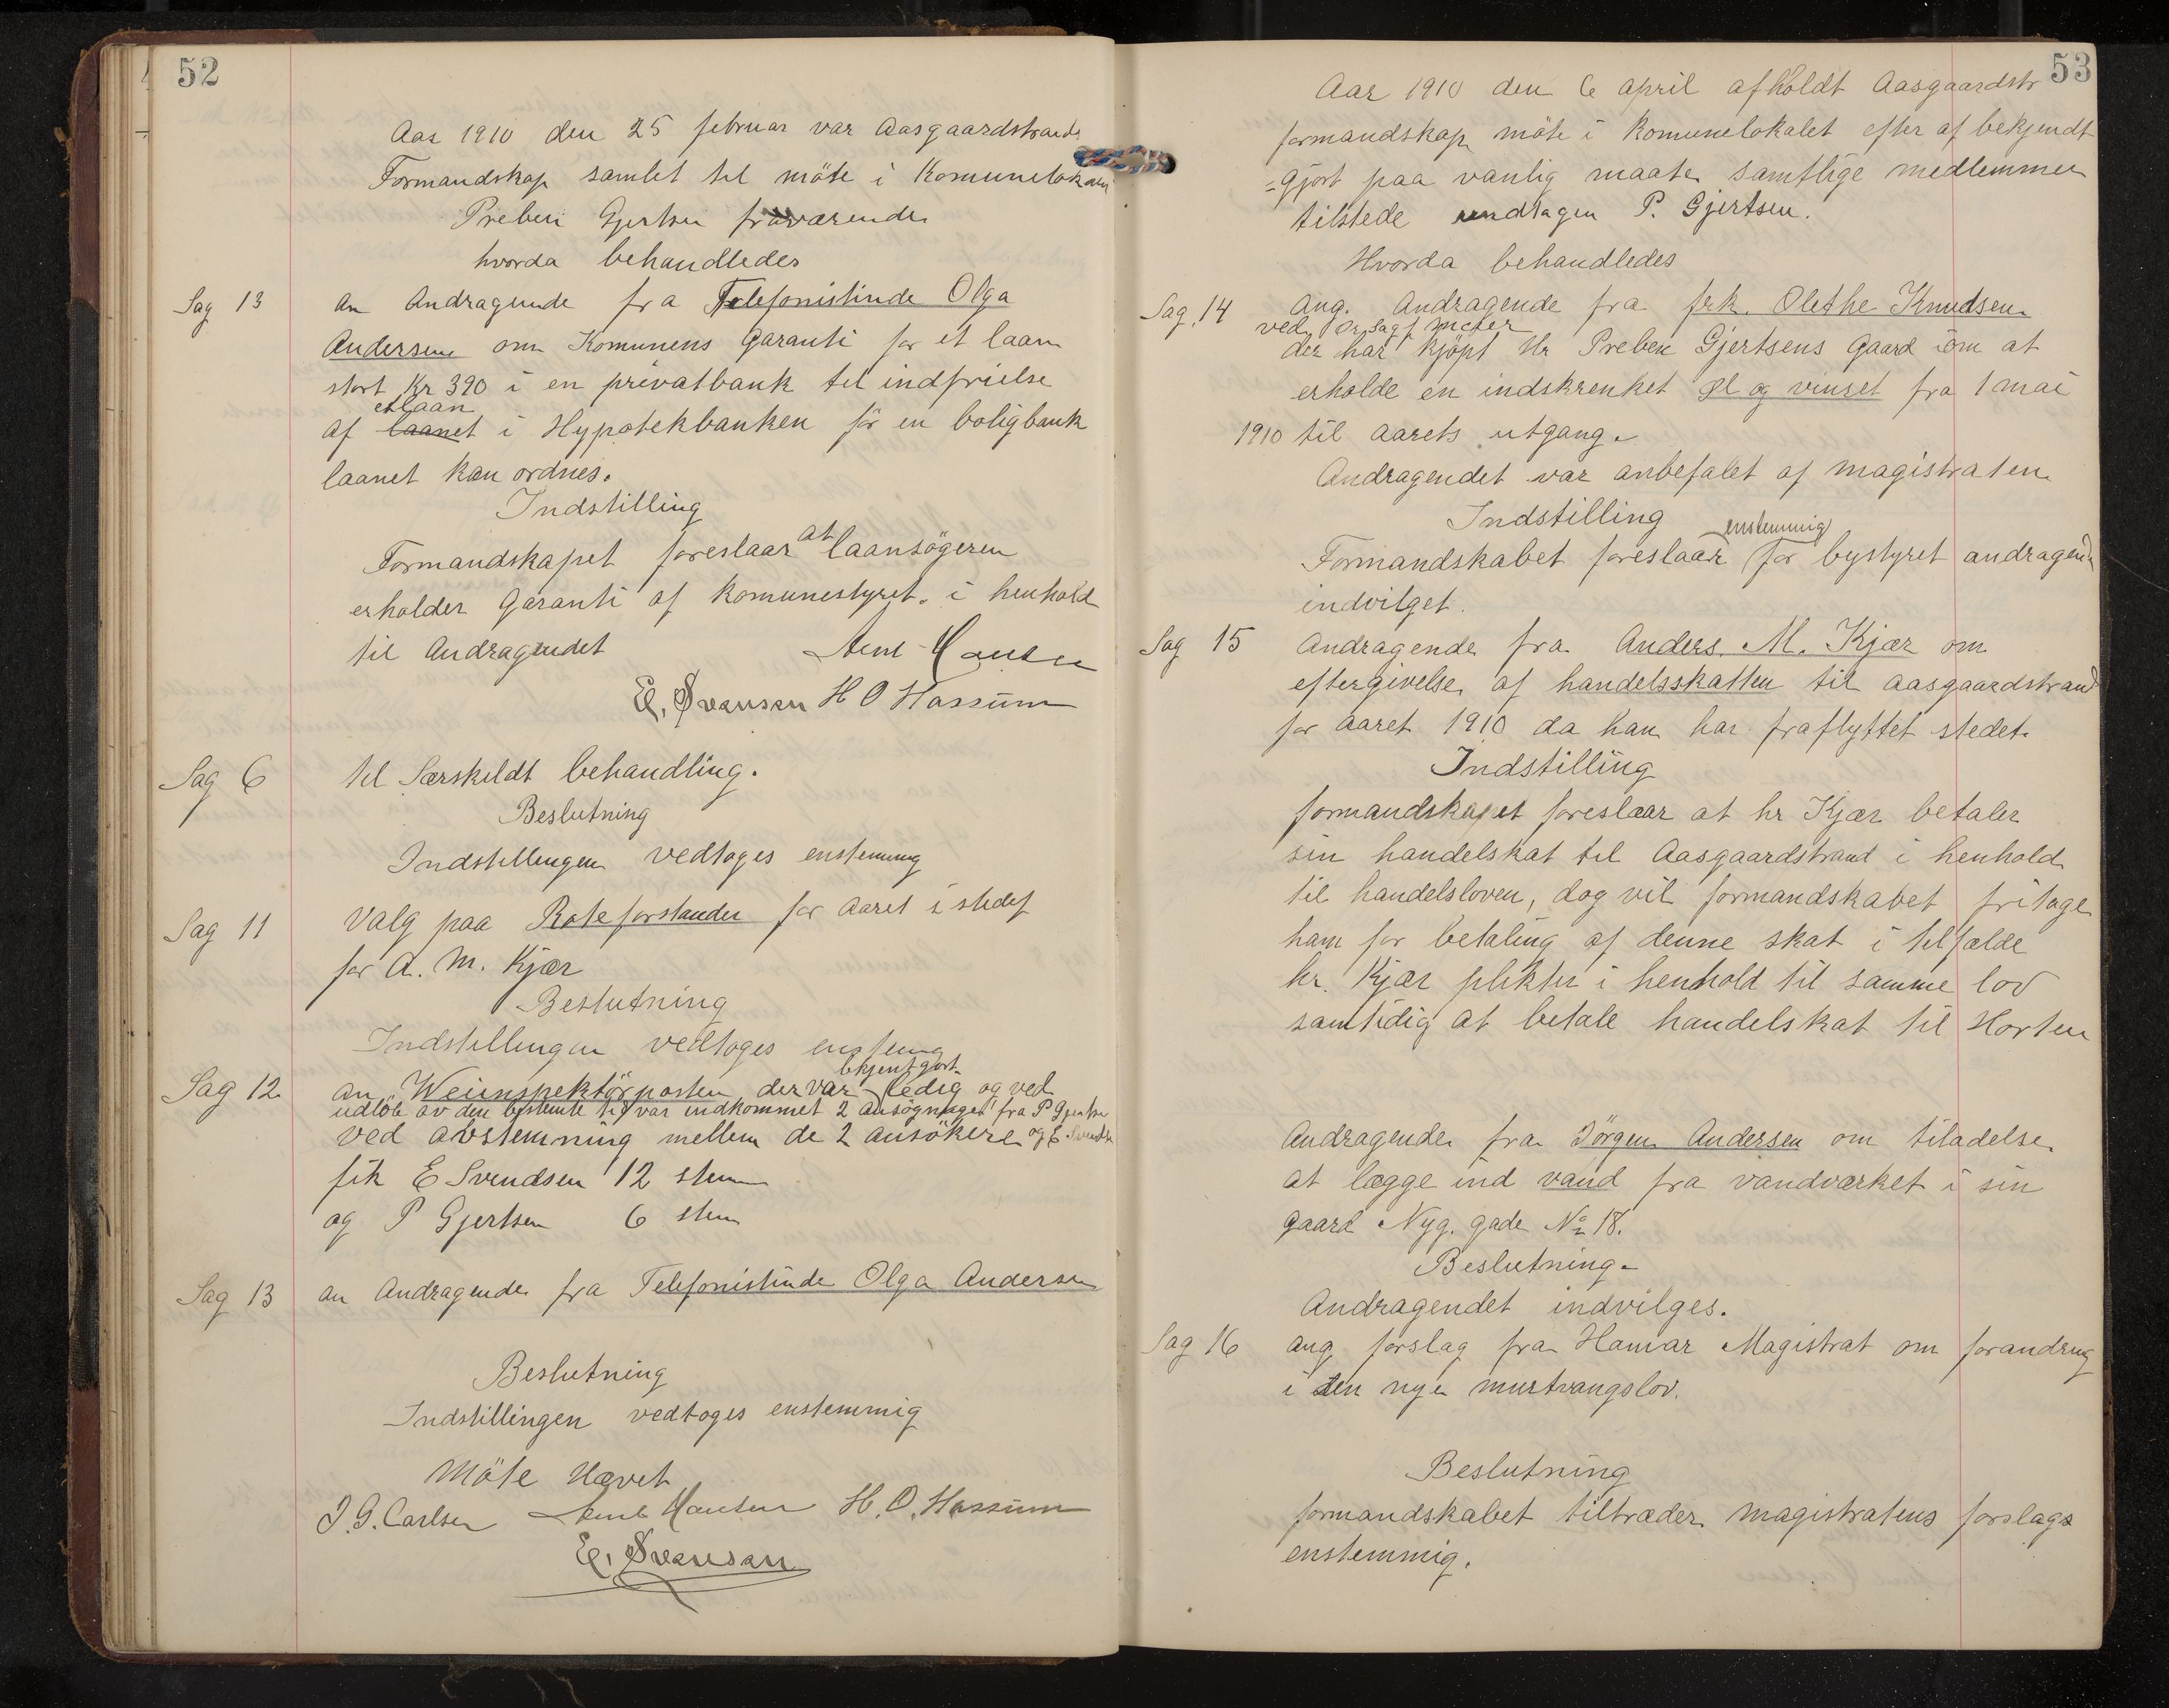 52
Aar 1910 den 25 februar var Aasgaardstrands
Formandskap samlet til möte i Komunelokalet
Preben Gjertsen fraværende
hvorda behandledes
Sag 13 an Andragende fra Telefonistinde Olga
Andersen om Komunens Garanti for et laan
stort Kr 390 i en privatbank til indfrielse
et laan
af laanet i Hypotekbanken för en boligbank
laanet kan ordnes.
Indstilling
Formandskapet foreslaar at laansögeren
erholder Garanti af komunestyret. i henhold
til Andragendet
Arnt Hansen
E. Svensen H O Hassum
Sag 6 til Særskildt behandling.
Beslutning
Indstillingen vedtoges enstemig
Sag 11 Valg paa Roteforstander for Aaret i stedet
for A. M. Kjær
Beslutning
Indstillingen vedtoges enstemig
bekjentgjort
Sag 12. an Weiinspektörposten der var ledig og ved
udlöb av den bestemte tid var indkommet 2 ansögninger fra P Gjertsen
ved avstemning mellem de 2 ansökere og E Svendsen
fik E Svendsen 12 stem
og P Gjertsen 6 stem
Sag 13 an Andragende fra Telefonistinde Olga Andersen
Beslutning
Indstillingen vedtoges enstemmig
Möte Hævet
J. G. Carlsen Arnt Hansen H. O. Hassum
E. Svensen
53
Aar 1910 den 6 april afholdt Aasgaardstr
formandskap möte i komunelokalet efter af bekjendt
=gjört paa vanlig maate samtlige medlemmer
tilstede undtagen P. Gjertsen.
Hvorda behandledes
Sag. 14 ang. Andragende fra frk. Olethe Knudsen
ved
der har kjöpt Hr Preben Gjertsens Gaard om at
erholde en indskrenket öl og vinret fra 1 mai
1910 til aarets utgang.
Andragendet var anbefalet af magistraten
Indstilling
enstemmig
Formandskabet foreslaar for bystyret andragende
indvilget.
Sag 15 Andragende fra Anders. M. Kjær om
eftergivelse af handelsskatten til aasgaardstrand
for aaret 1910 da han har fraflyttet stedet.
Indstilling
formandskapet foreslaar at hr Kjær betaler
sin handelskat til Aasgaardstrand i henhold
til handelsloven, dog vil formandskabet fritage
ham for betaling af denne skat i tilfælde
hr. Kjær plikter i henhold til samme lov
samtidig at betale handelskat til Horten
Andragende fra Jörgen Andersen om tiladelse
at lægge ind vand fra vandværket i sin
gaard Nyg. gade No 18.
Beslutning.
Andragendet indvilges.
Sag 16 ang forslag fra Hamar Magistrat om forandring
i den nye murtvangslov.
Beslutning
formandskabet tiltræder magistratens forslags
enstemmig.